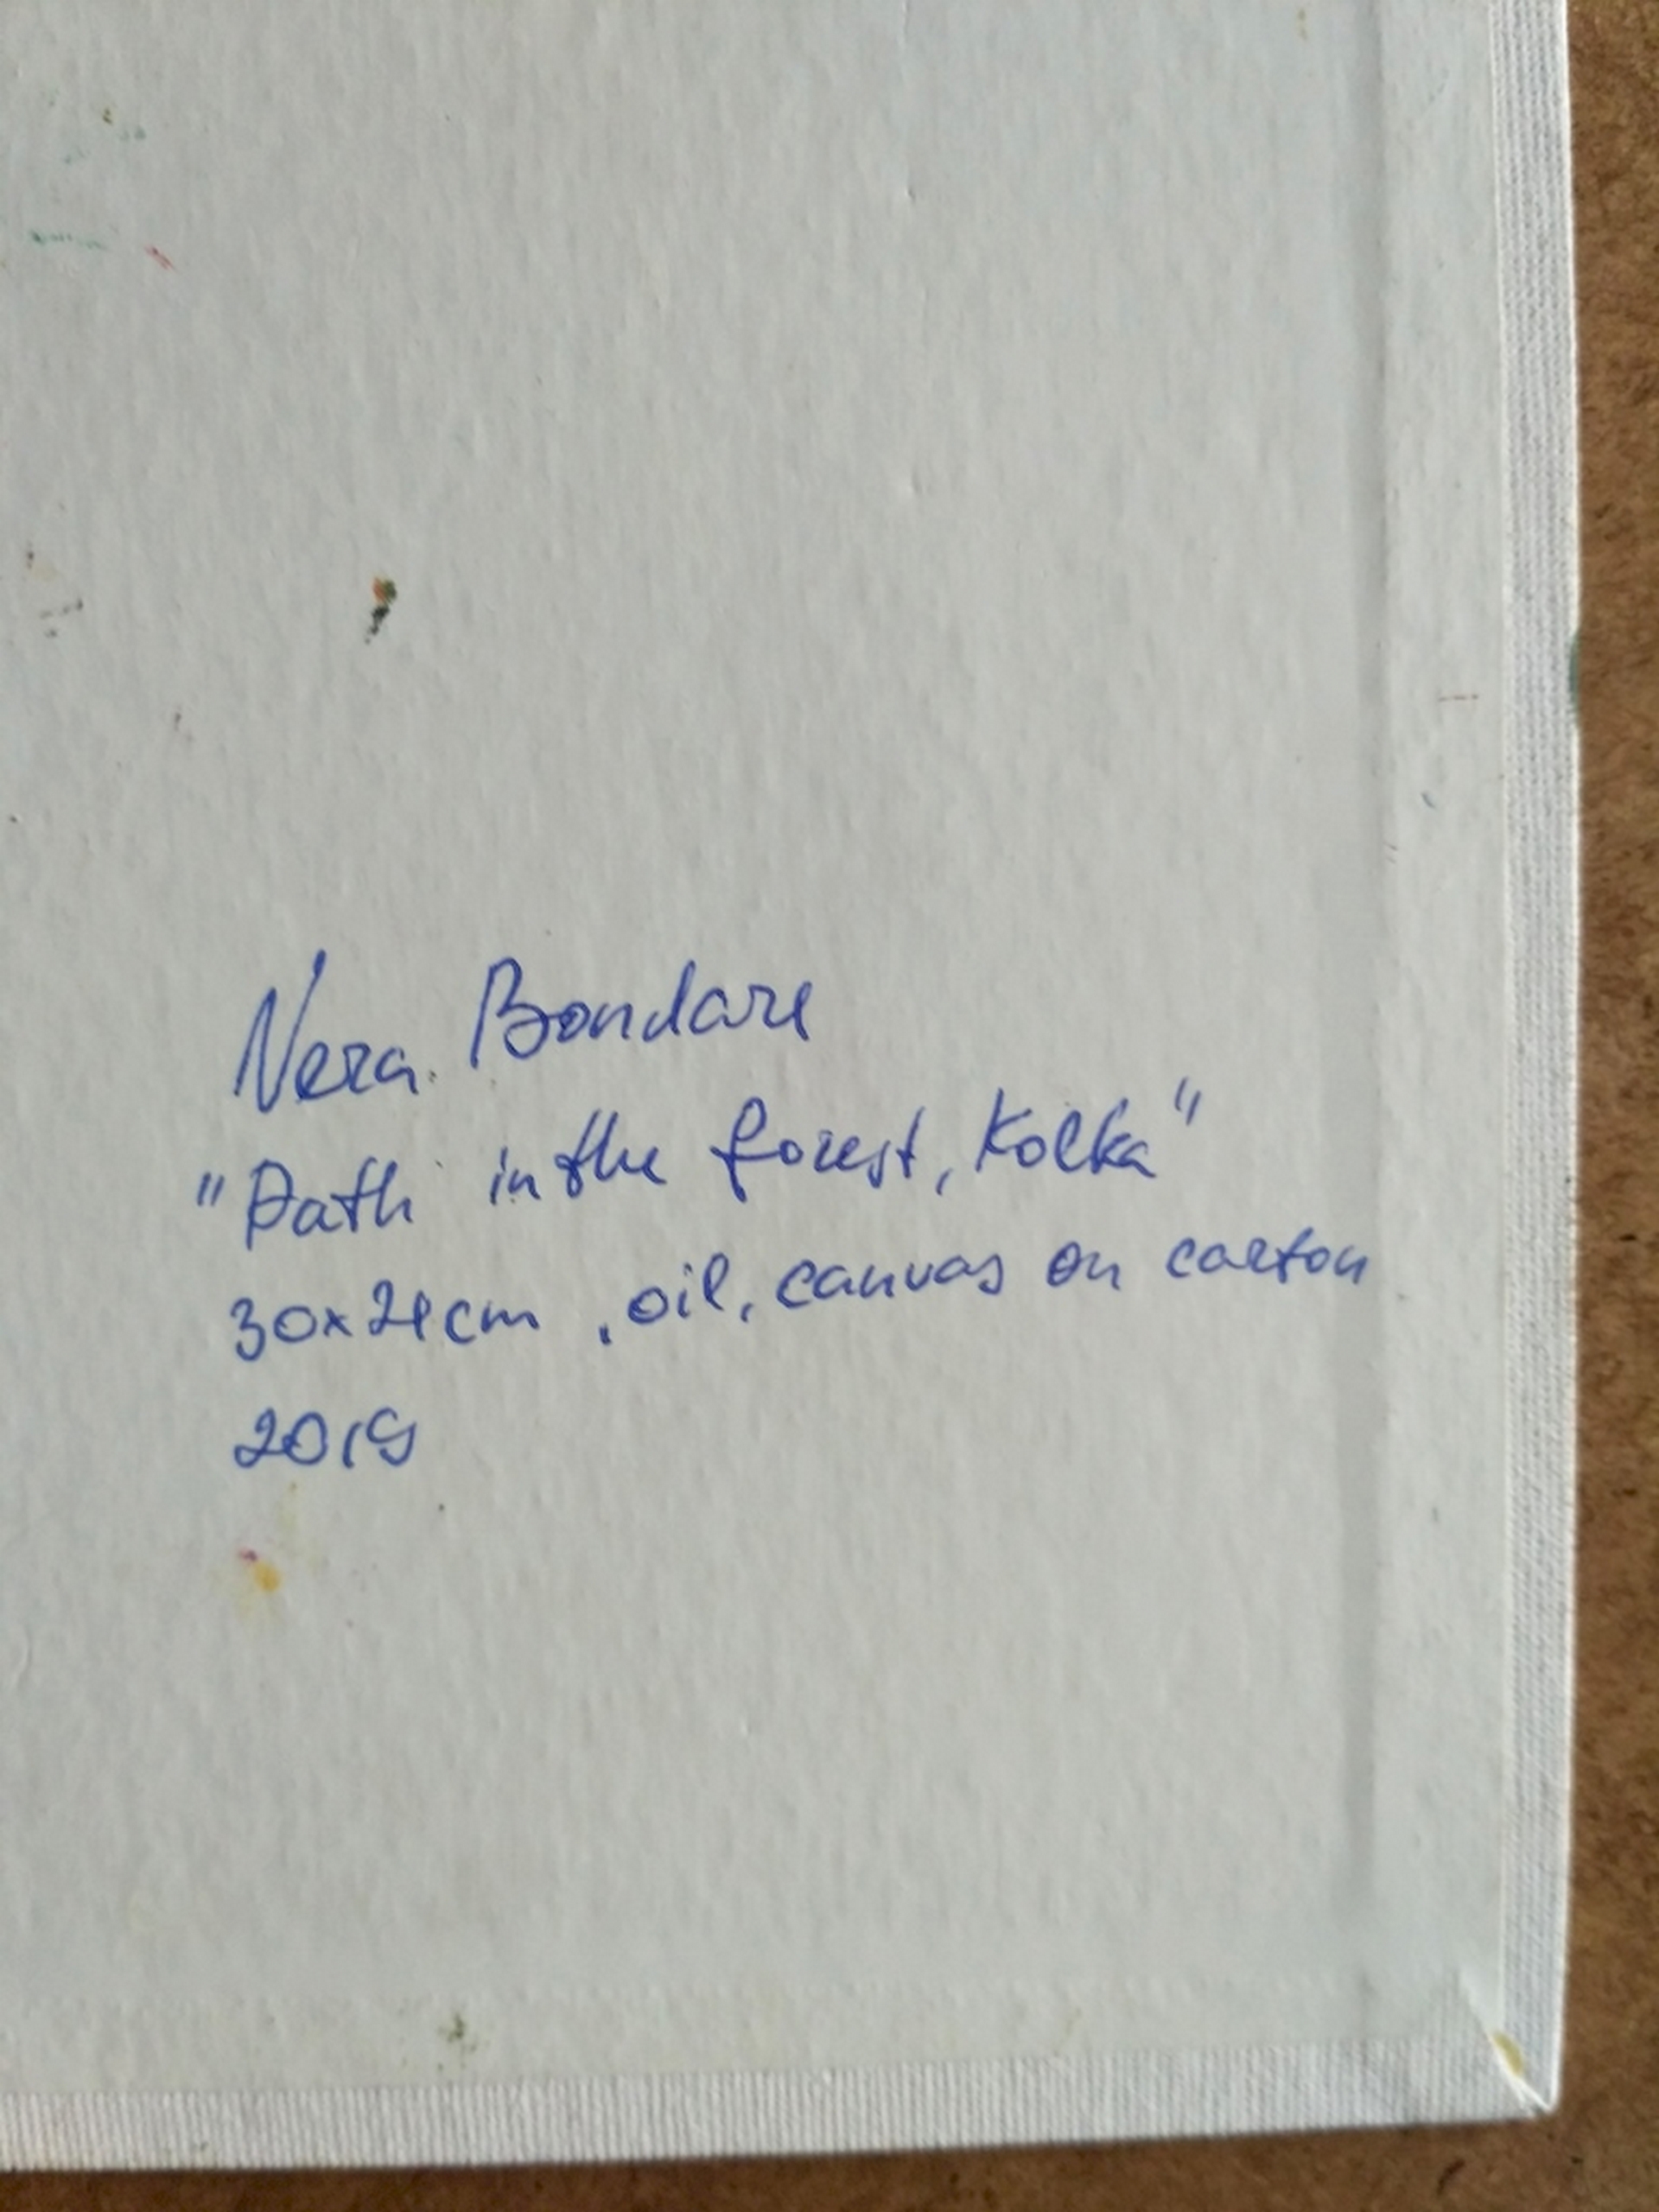 Vera Bondare
"Path in the forest, Kolka"
30x24cm, oil, canvas on carton
2019